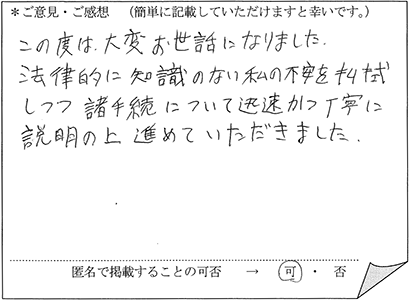 *ご意見・ご感想　(簡単に記載していただけますと幸いです。)
この度は、大変お世話になりました。
法律的に知識のない私の不安を払拭
しつつ諸手続について迅速かつ丁寧に
説明の上進めていただきました。
匿名で掲載することの可否　→　可・否